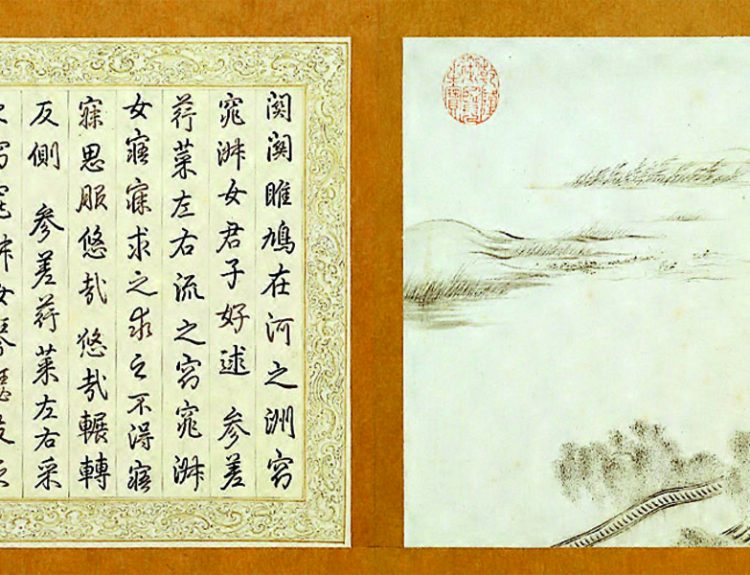 關關雎鳩在河之洲窈
窕淑女君子好逑 參差
荇菜左右流之窈窕淑
女寤寐求之求之不得寤
寐思服悠哉悠哉輾轉
反側 參差荇菜左右采
之窈窕淑女琴瑟友之
乾隆御覽之寶